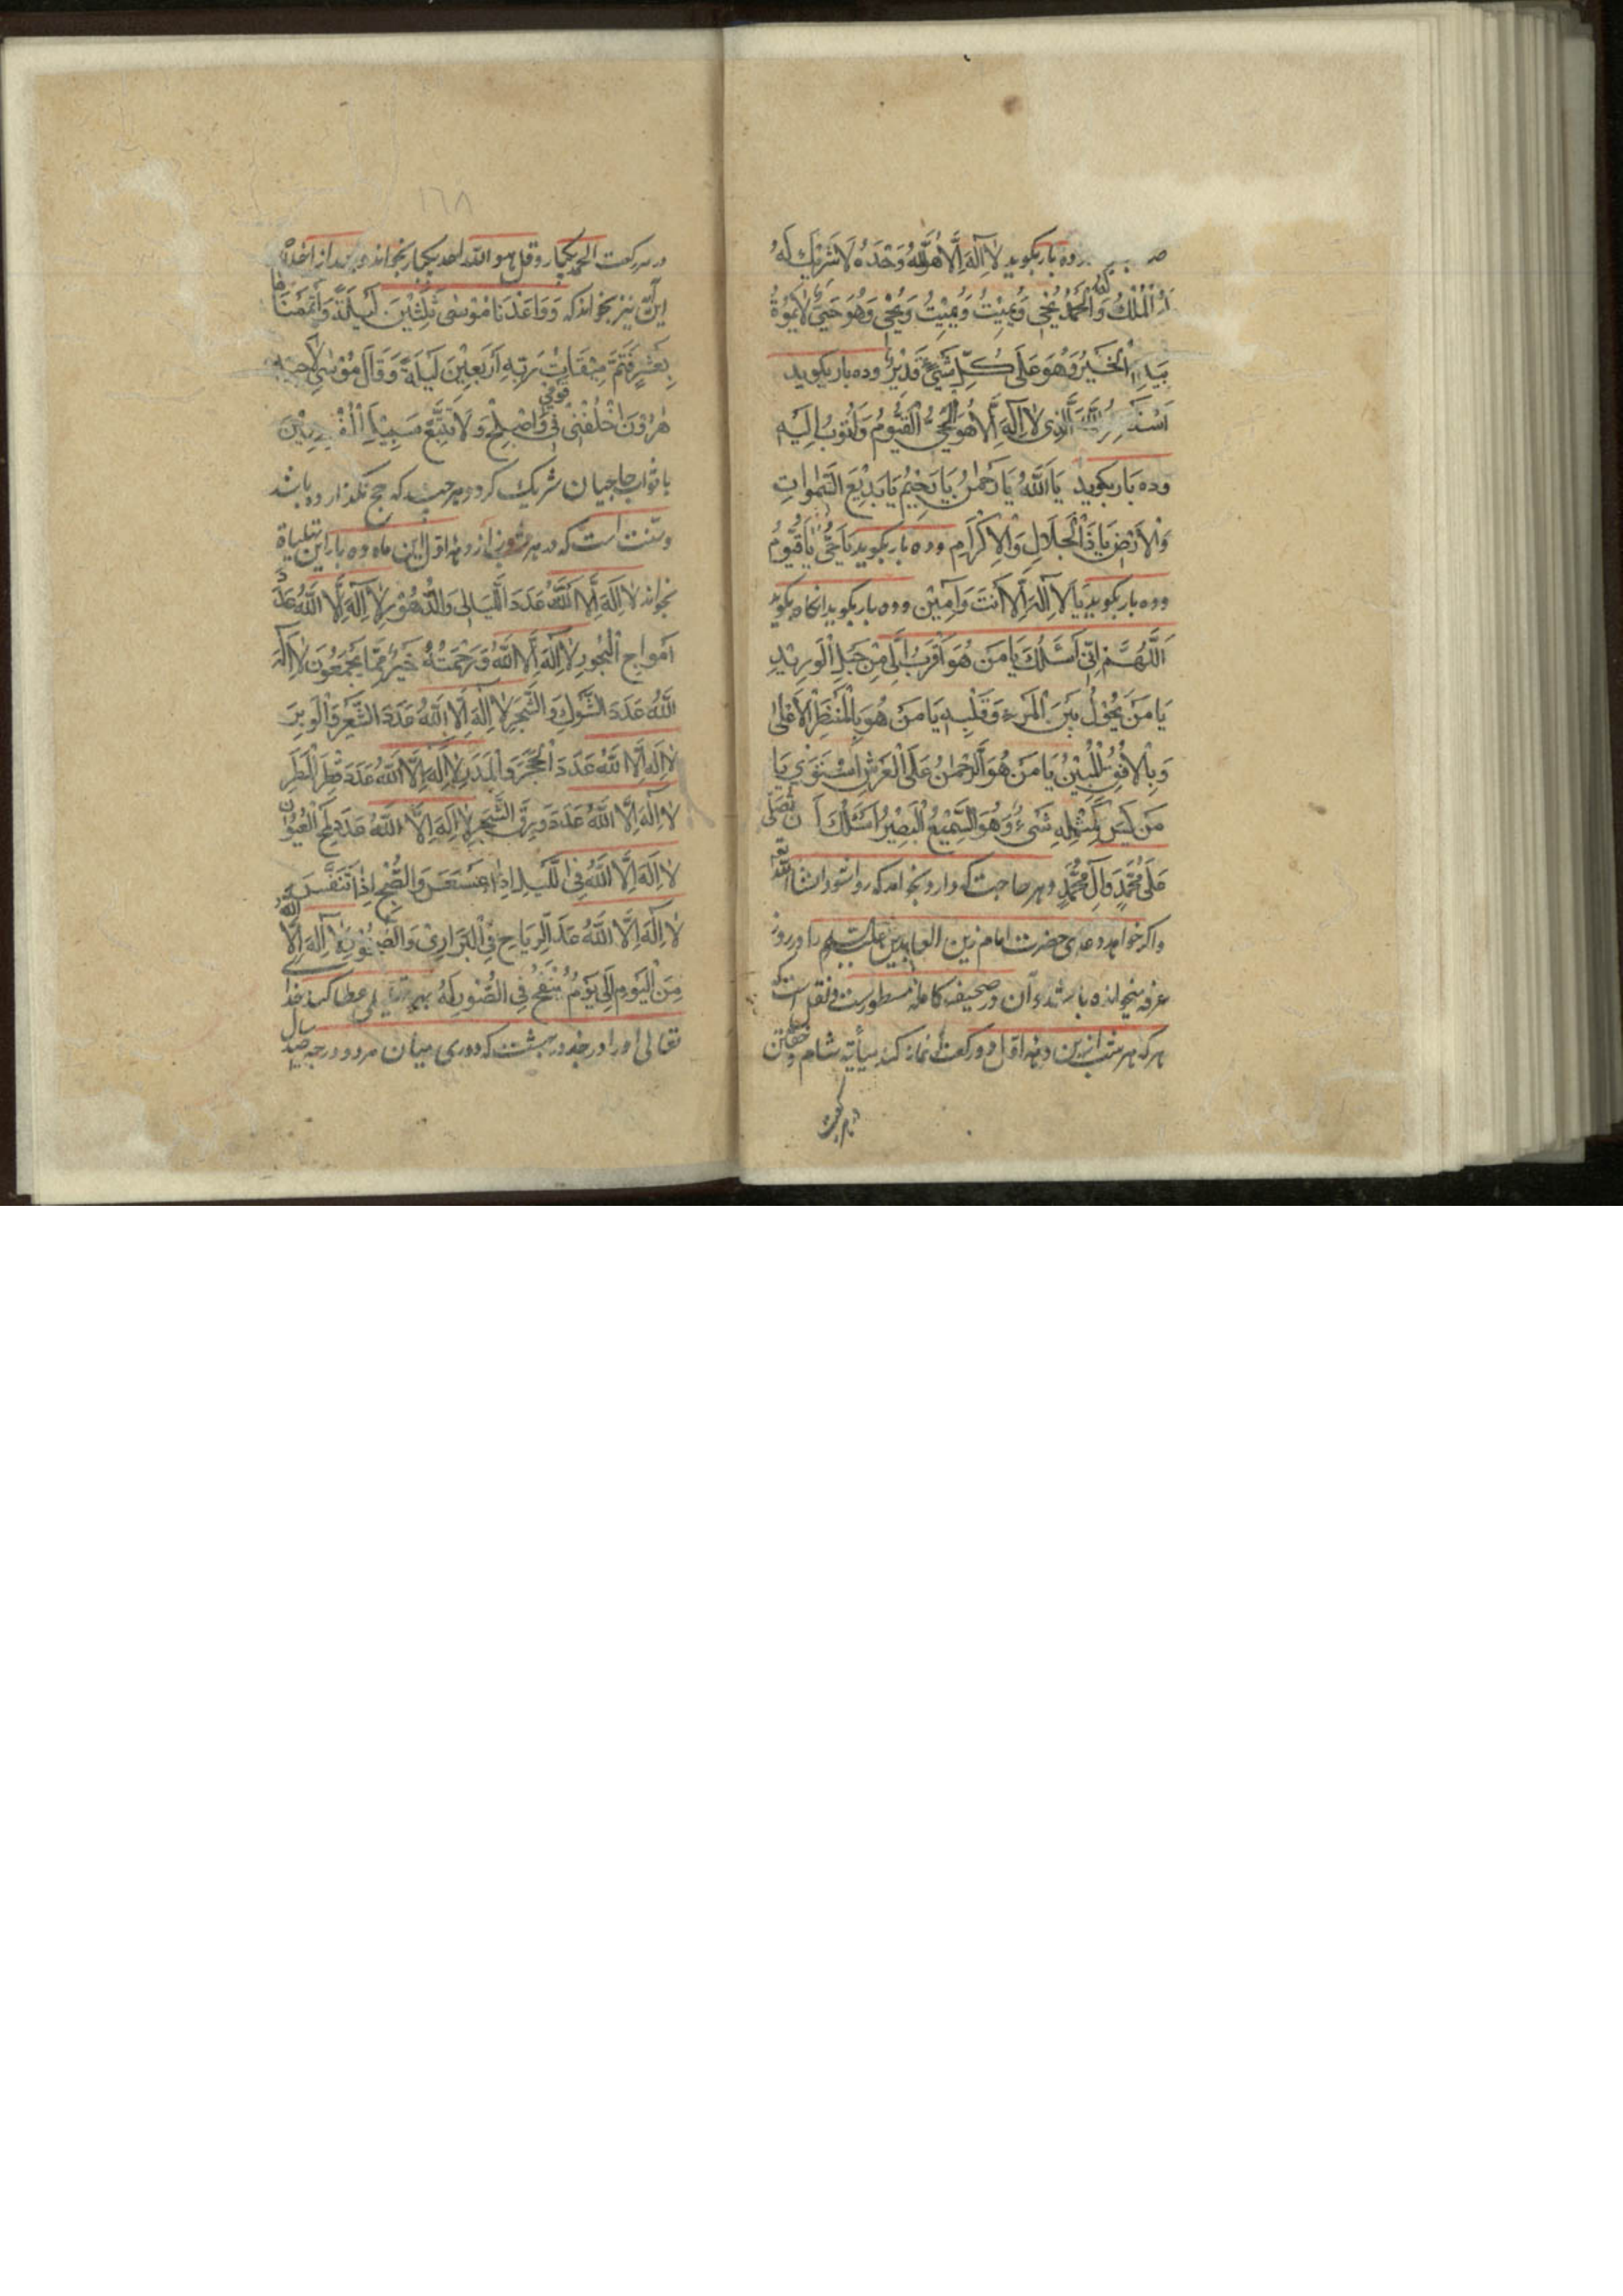 وده بار بگوید لَا اِلٰهَ اِلَّا اللّٰهُ وَحْدَهُ لَا شَرِیْكَ لَهُ
لَهُ الْمُلْكُ وَلَهُ الْحَمْدُ یُحْیِی وَیُمِیْتُ وَیُمِیْتُ وَیُحْیِی وَهُوَ حَیٌّ لَا یَمُوْتُ
بِیَدِهِ الْخَیْرُ وَهُوَ عَلَی كُلِّ شَیْءٍ قَدِیْرٌ وده بار بگوید
اَسْتَغْفِرُ اللّٰهَ الَّذِی لَا اِلٰهَ اِلَّا هُوَ الْحَیُّ الْقَیُّوْمُ وَاَتُوْبُ اِلَیْهِ
وده بار بگوید یَا اَللّٰهُ یَا رَحْمٰنُ یَا رَحِیْمُ یَا بَدِیْعَ السَّمٰوَاتِ
وَالْاَرْضِ یَا ذَا الْجَلَالِ وَالْاِكْرَامِ وده بار بگوید یَا حَیُّ یَا قَیُّوْمُ
وده بار بگوید یَا لَا اِلٰهَ اِلَّا اَنْتَ وَآمِیْن وده بار بگوید انگاه بگوید
اَللّٰهُمَّ اِنِّی اَسْئَلُكَ یَا مَنْ هُوَ اَقْرَبُ اِلَیَّ مِنْ حَبْلِ الْوَرِیْدِ
یَا مَنْ یَحُوْلُ بَیْنَ الْمَرْءِ وَقَلْبِهِ یَا مَنْ هُوَ بِالْمَنْظَرِ الْاَعْلٰی
وَبِالْاُفُقِ الْمُبِیْنِ یَا مَنْ هُوَ الرَّحْمٰنُ عَلَی الْعَرْشِ اسْتَوٰی یَا
مَنْ لَیْسَ كَمِثْلِهِ شَیْءٌ وَهُوَ السَّمِیْعُ الْبَصِیْرُ اَسْئَلُكَ اَنْ تُصَلِّیَ
عَلٰی مُحَمَّدٍ وَآلِ مُحَمَّدٍ وهر حاجت که دارد بخواهد که روا شود انشاء الله تع
واگر خواهد دعای حضرت امام زین العابدین علیه السلم را در روز
عرفه میخوانده باشد وآن در صحیفه کامله مسطورست ونقل است که
هر که هر شب ازین دهه اول دو رکعت نماز کند میانه شام وخفتن
در هر رکعت
١٦٨
در هر رکعت الحمد یکبار وقل هو الله احد یکبار بخواند وبعد از اخلاص
این آیة نیز بخواند که وَوَاعَدْنَا مُوْسٰی ثَلٰثِیْنَ لَیْلَةً وَاَتْمَمْنَاهَا
بِعَشْرٍ فَتَمَّ مِیْقَاتُ رَبِّهِ اَرْبَعِیْنَ لَیْلَةً وَقَالَ مُوْسٰی لِاَخِیْهِ
هٰرُوْنَ اخْلُفْنِی فِی قَوْمِی وَاَصْلِحْ وَلَا تَتَّبِعْ سَبِیْلَ الْمُفْسِدِیْنَ
با ثواب حاجیان شریک گردد هر چند که حج نگذارده باشد
وسنت است که در هر روز از دهه اول این ماه ده بار این تهلیلات
بخواند لَا اِلٰهَ اِلَّا اللّٰهُ عَدَدَ اللَّیَالِی وَالدُّهُوْرِ لَا اِلٰهَ اِلَّا اللّٰهُ عَدَدَ
اَمْوَاجِ الْبُحُورِ لَا اِلٰهَ اِلَّا اللّٰهُ وَرَحْمَتُهُ خَیْرٌ مِمَّا یَجْمَعُوْنَ لَا اِلٰهَ اِلَّا
اللّٰهُ عَدَدَ الشَّوْكِ وَالشَّجَرِ لَا اِلٰهَ اِلَّا اللّٰهُ عَدَدَ الشَّعْرِ وَالْوَبَرِ
لَا اِلٰهَ اِلَّا اللّٰهُ عَدَدَ الْحَجَرِ وَالْمَدَرِ لَا اِلٰهَ اِلَّا اللّٰهُ عَدَدَ قَطْرِ الْمَطَرِ
لَا اِلٰهَ اِلَّا اللّٰهُ عَدَدَ وَرَقِ الشَّجَرِ لَا اِلٰهَ اِلَّا اللّٰهُ عَدَدَ لَمْحِ الْعُیُوْنِ
لَا اِلٰهَ اِلَّا اللّٰهُ فِی اللَّیْلِ اِذَا عَسْعَسَ وَالصُّبْحِ اِذَا تَنَفَّسَ
لَا اِلٰهَ اِلَّا اللّٰهُ عَدَدَ الرِّیَاحِ فِی الْبَرَارِیْ وَالصُّخُوْرِ لَا اِلٰهَ اِلَّا اللّٰهُ
مِنَ الْیَوْمِ اِلٰی یَوْمِ یُنْفَخُ فِی الصُّوْرِ که بهر تهلیلی عطا کند خدا
تعالی او را درجه در بهشت که دوری میان هر دو درجه صد سال